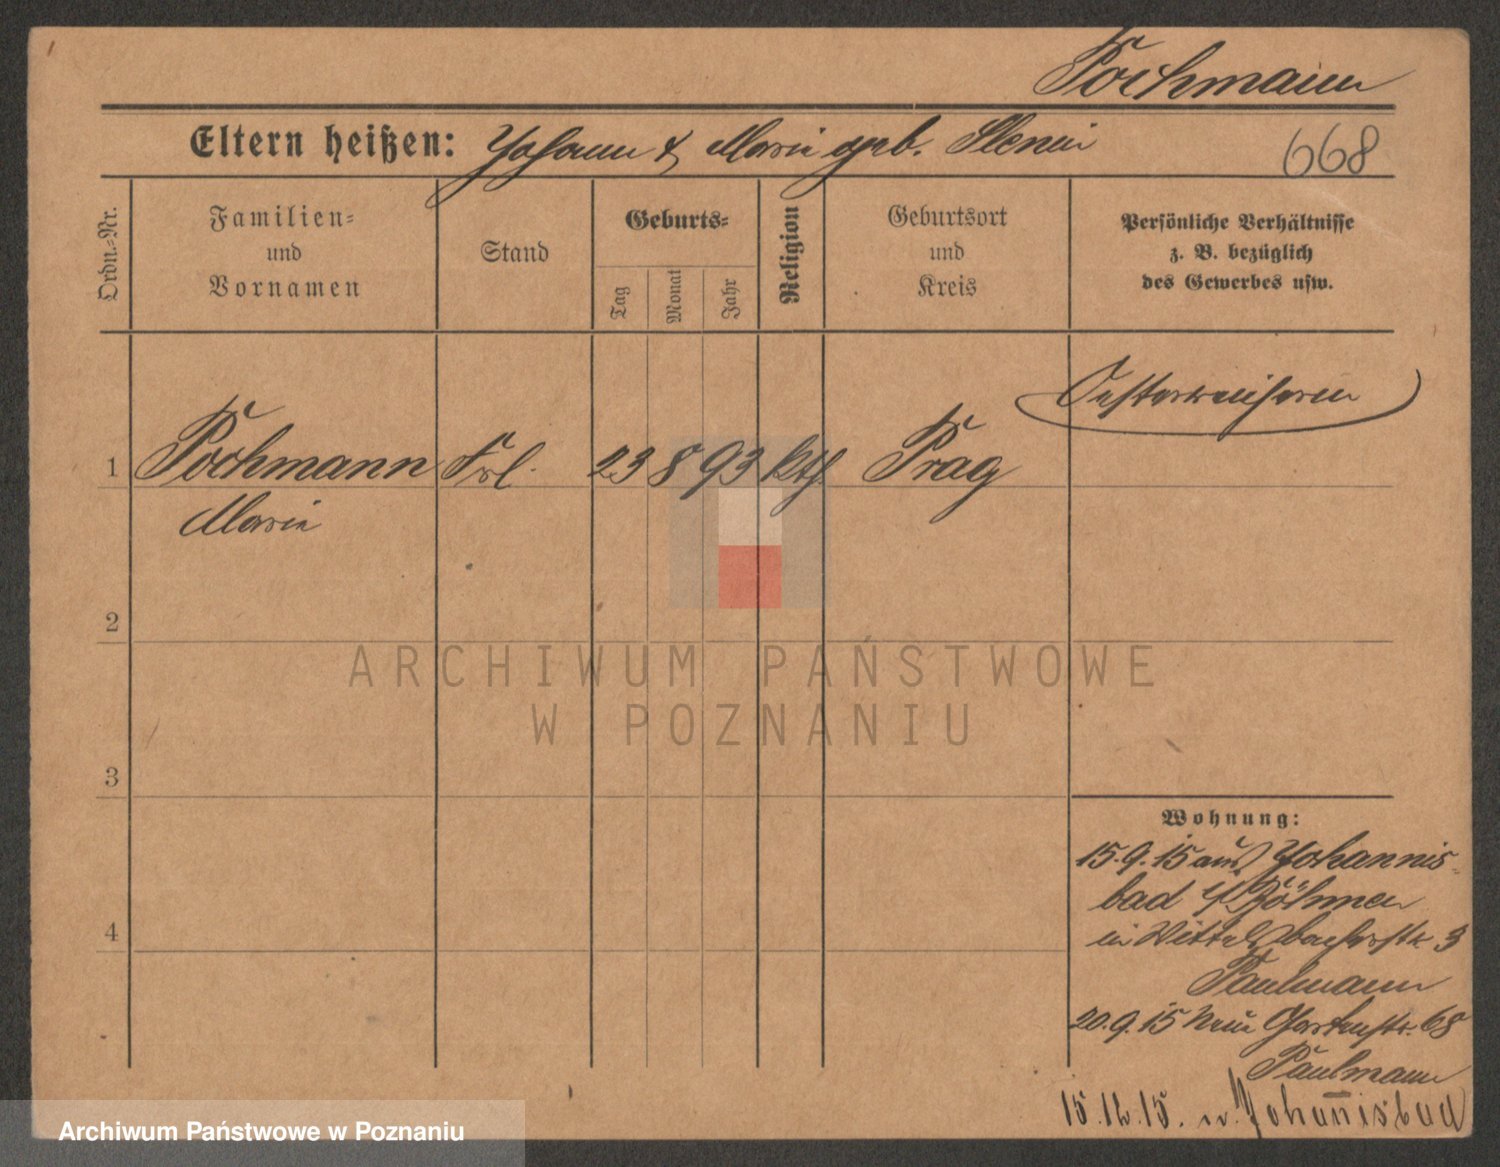 Pochmann
Eltern heißen: Johann & Marie geb. Slenin
668
Ordn.-Nr.
Familien-
und
Vornamen
Stand
Geburts-
Tag
Monat
Jahr
Religion
Geburtsort
und
Kreis
Persönliche Verhältnisse
z. B. bezüglich
des Gewerbes usw.
Oesterreicherin
1 Pochmann Frl. 23 8 93 kth. Prag
Marie
2
ARCHIWUM PAŃSTWOWE
W POZNANIU
3
Wohnung:
15.9.15 aus Johannis-
bad i/Böhmen
in Wittelsbacherstr. 3
Paulmann
4
20.9.15 Neue Gartenstr. 68
Paulmann
15.12.15. n. Johannisbad
Archiwum Państwowe w Poznaniu